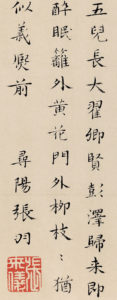 五兒長大翟卿賢彭澤歸来即
醉眠籬外黄花門外柳枝〻猶
似義熙前 尋陽張羽